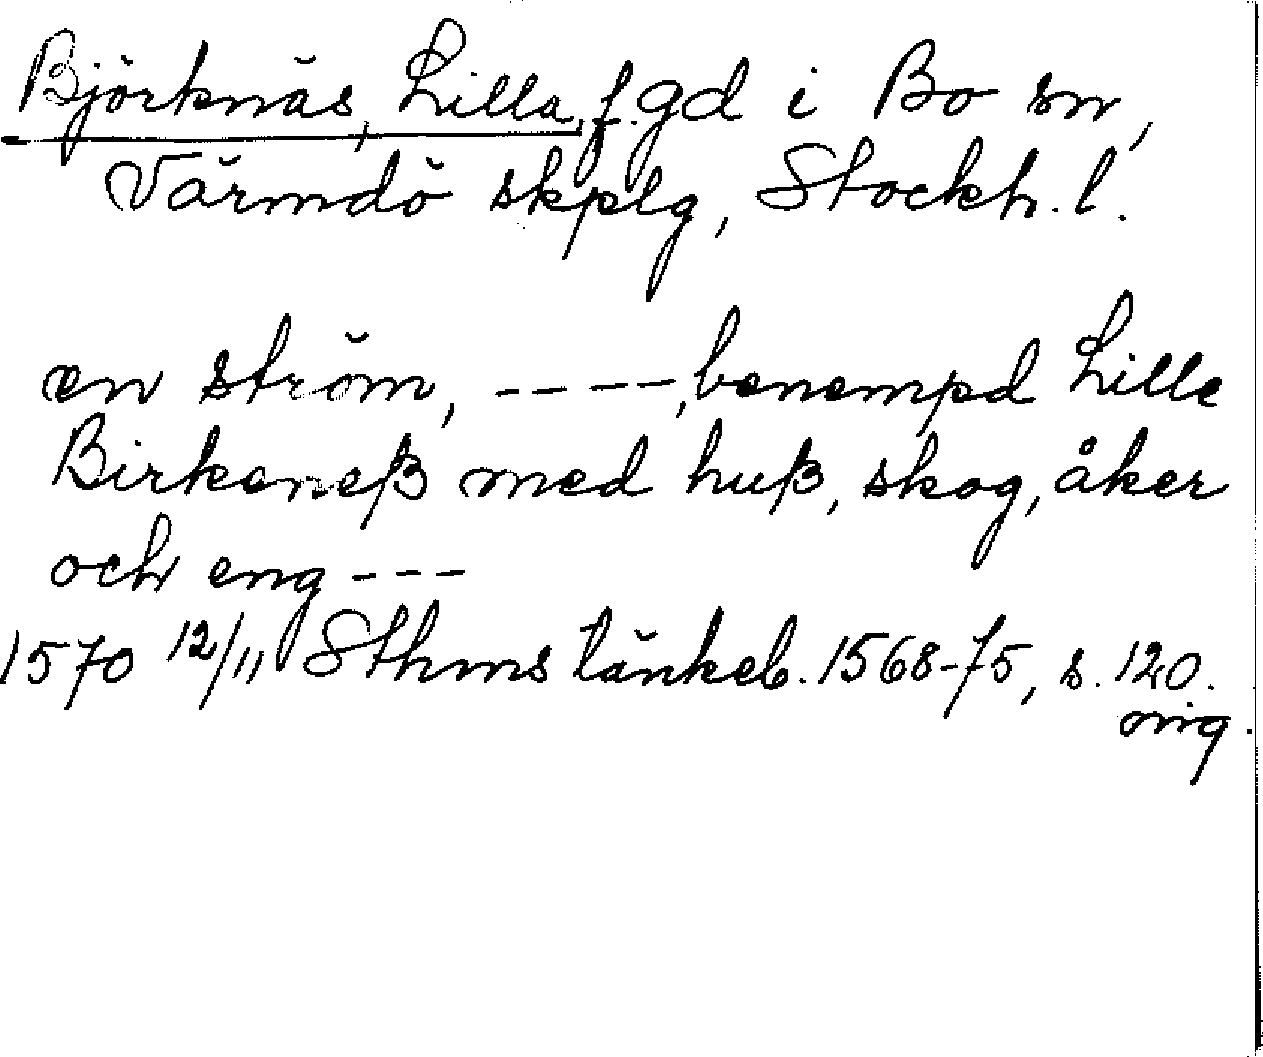 Björknäs, Lilla, f. gd i Bo sn,
Värmdö skplg, Stockh. l.
en ström, ----, benempd Lille
Birkeneß med huß, skog, åker
och eng ---
1570 12/11 Sthms tänkeb. 1568-75, s. 120.
orig.